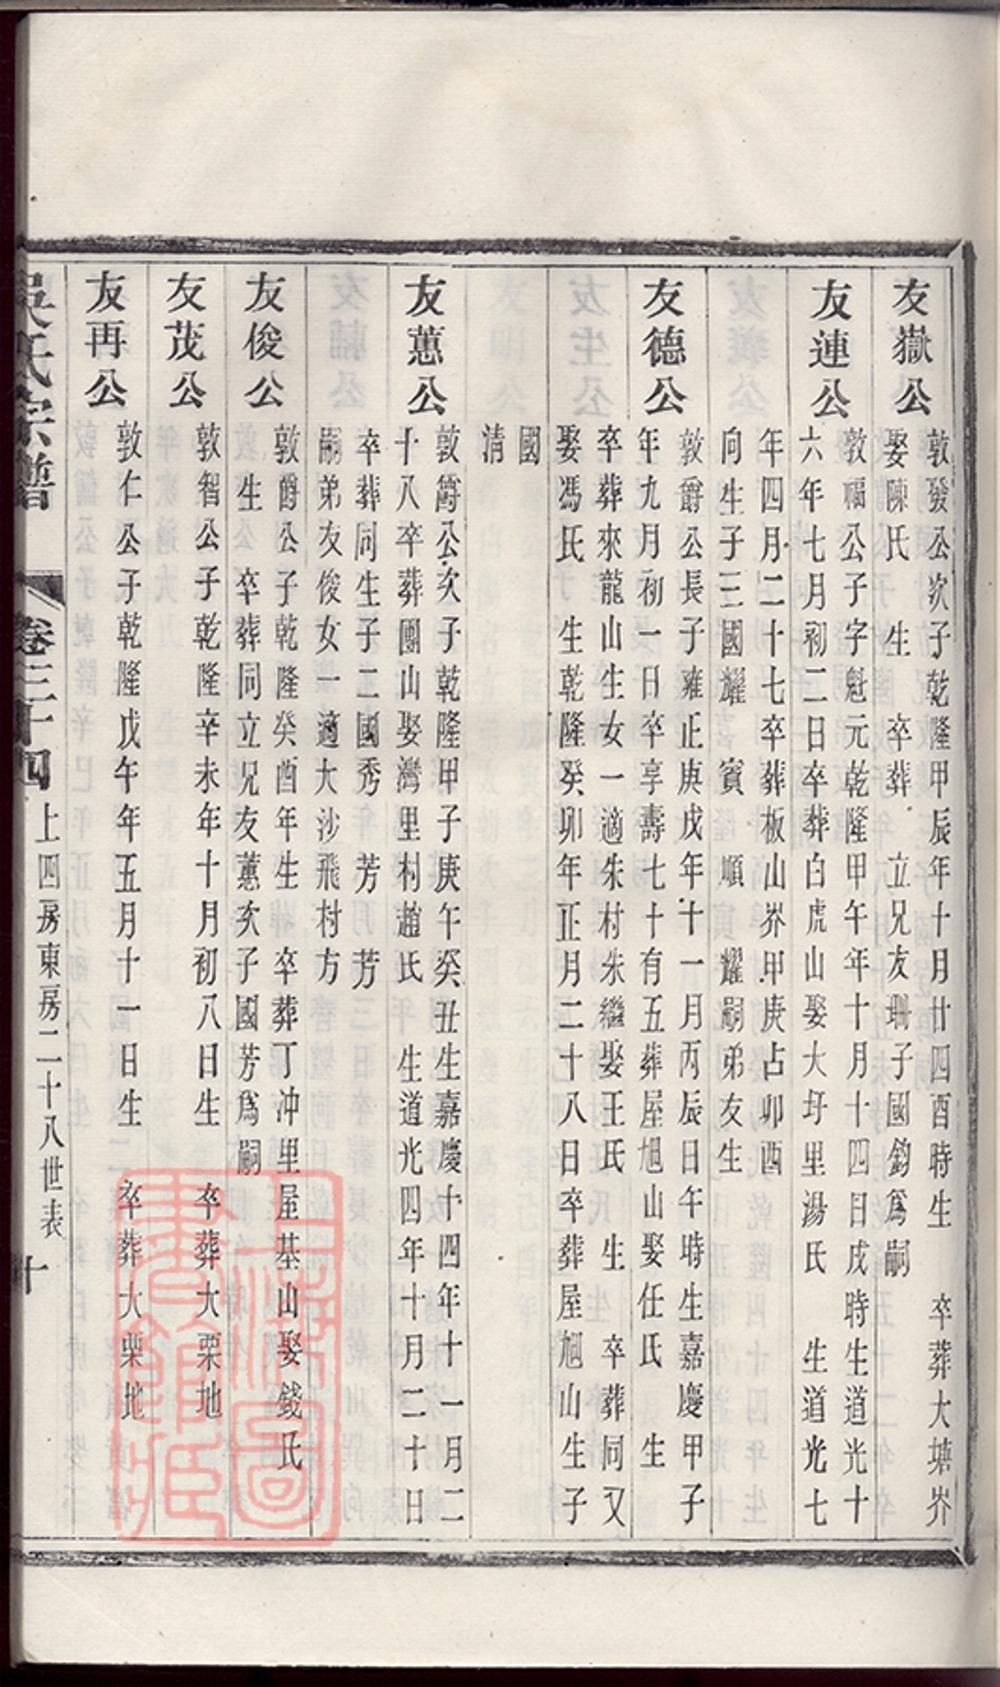 友嶽公
敦發公次子乾隆甲辰年十月廿四酉時生 卒葬大塘岕
娶陳氏 生 卒葬 立兄友珊子國鈞爲嗣
友連公
敦福公子字魁元乾隆甲午年十月十四日戍時生道光十
六年七月初二日卒葬白虎山娶大圩里湯氏 生道光七
年四月二十七卒葬板山岕甲庚占卯酉
向生子三國耀 寶 順 耀嗣弟友生
友德公
敦爵公長子雍正庚戍年十一月丙辰日午時生嘉慶甲子
年九月初一日卒享壽七十有五葬屋旭山娶任氏 生
卒葬來龍山生女一適朱村朱繼娶王氏 生 卒葬同又
娶馮氏 生乾隆癸卯年正月二十八日卒葬屋旭山生子
國
清
友蕙公
敦爵公次子乾隆甲子庚午癸丑生嘉慶十四年十一月二
十八卒葬團山娶灣里村趙氏 生道光四年十月二十日
卒葬同生子二國秀 芳 芳
嗣弟友俊女一適大沙飛村方
友俊公
敦爵公子乾隆癸酉年生 卒葬丁冲里屋基山娶錢氏
生 卒葬同立兄友蕙次子國芳爲嗣
友茂公
敦智公子乾隆辛未年十月初八日生 卒葬大栗地
友再公
敦仁公子乾隆戊午年五月十一日生 卒葬大栗地
吳氏宗譜 卷三十四 上四房東房二十八世表 十
上海圖書館藏